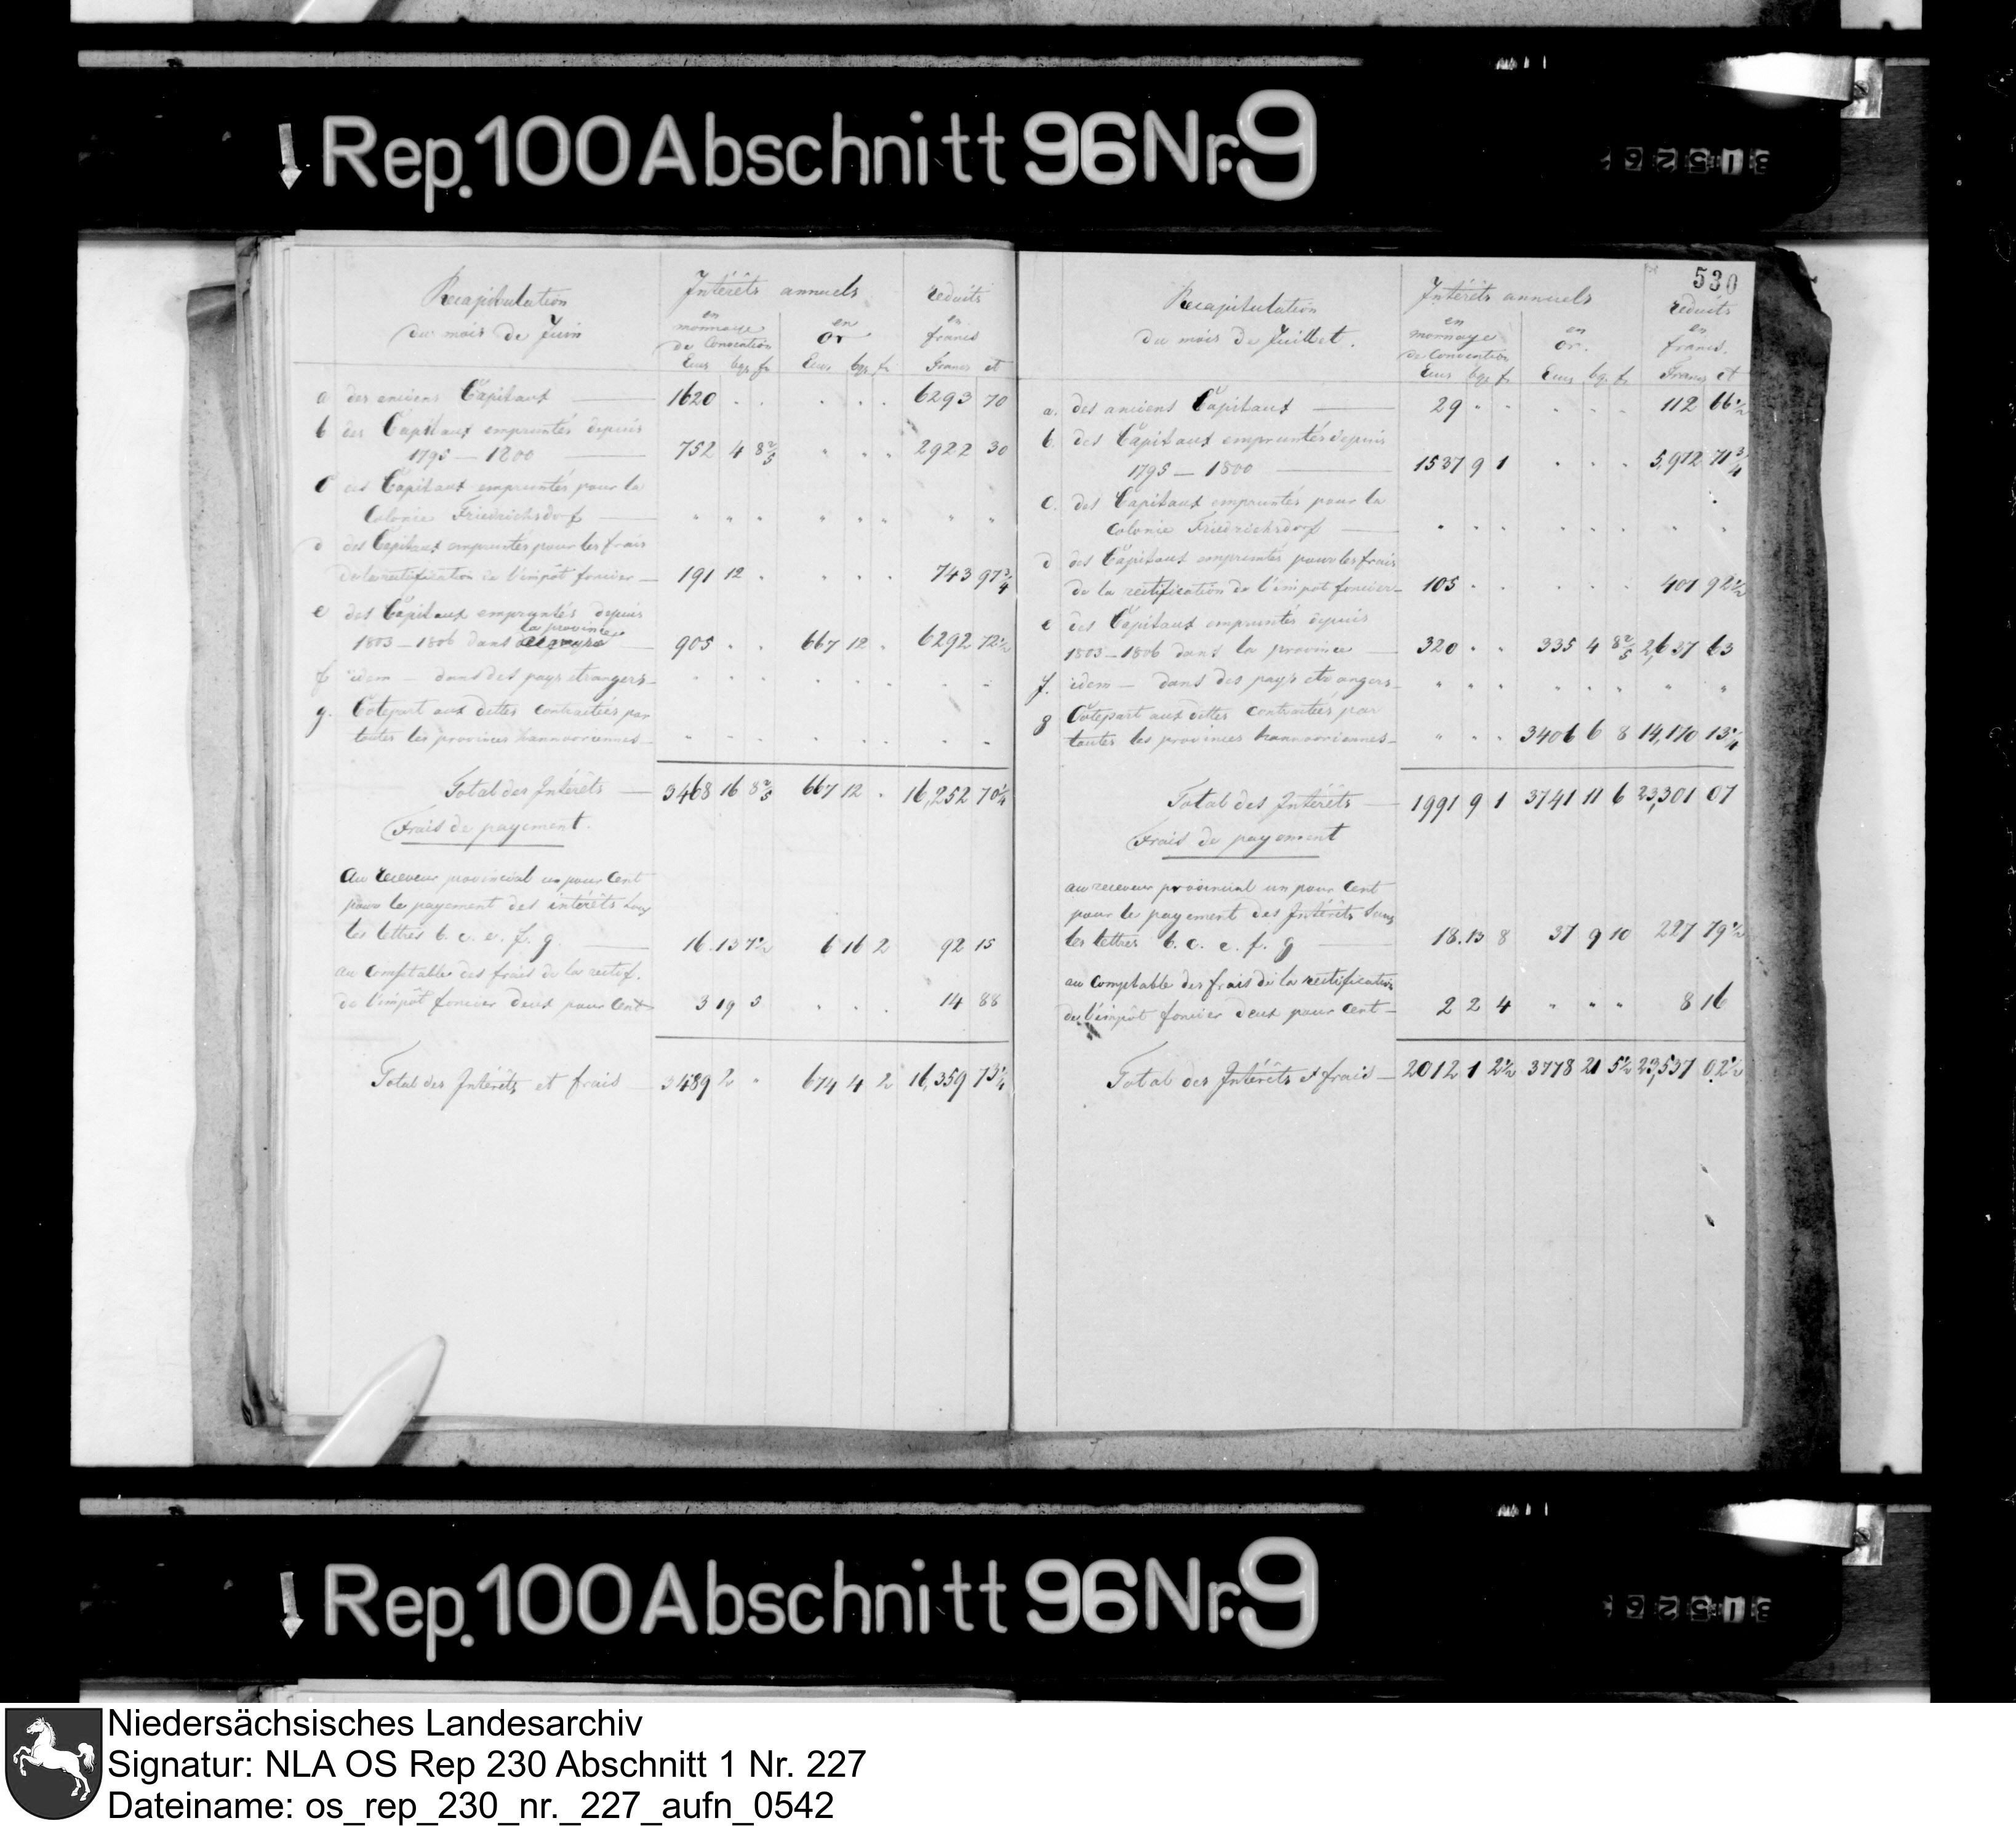 Rep. 100 Abschnitt 96 Nr. 9
Recapitulation
du mois de Juin
Intérêts annuels
reduits
en monnaye de Convention
en or
en francs
Ecus bgs fr
Ecus bgs fr
Francs ct
a des anciens Capitaux 1620 . . . . . 6293 70
b des Capitaux empruntés depuis
1795 — 1800 752 4 8 2/5 " . . 2922 30
c des Capitaux empruntés pour la
Colonie Friedrichsdorf " " " " " " " "
d des Capitaux empruntés pour les frais
de la rectification de l'impôt foncier 191 12 . . . . 743 97 3/4
e des Capitaux empruntés depuis
la province
1803 — 1806 dans 905 . . 667 12 . 6292 72 1/2
f idem — dans des pays etrangers
g. Cotepart aux dettes contractées par
toutes les provinces hannovriennes
Total des Intérêts 3468 16 8 2/5 667 12 . 16,252 70 1/4
Frais de payement.
Au receveur provincial un pour Cent
pour le payement des intérêts sous
les lettres b. c. e. f. g. 16 . 13 7 1/2 6 16 2 92 15
au Comptable des frais de la rectif.
de l'impôt foncier deux pour Cent 3 19 3 . . . 14 88
Total des Intérêts et frais 3489 2 " 674 4 2 16,359 73 1/4
530
Recapitulation
du mois de Juillet.
Intérêts annuels
reduits
en monnaye de Convention
en or.
en francs.
Ecus bgs fr
Ecus bgs fr
Francs ct
a. des anciens Capitaux 29 . . . . . 112 66 1/2
b. des Capitaux empruntés depuis
1795 — 1800 1537 9 1 . . . 5,972 71 3/4
c. des Capitaux empruntés pour la
Colonie Friedrichsdorf
d des Capitaux empruntés pour les frais
de la rectification de l'impot foncier 105 . . . . . 407 92 1/2
e des Capitaux empruntés depuis
1803 — 1806 dans la province 320 . . 335 4 8 2/5 2,637 63
f. idem — dans des pays etrangers
g Cotepart aux dettes contractées par
toutes les provinces hannovriennes " . . 3406 6 8 14,170 13 1/4
Total des Intérêts 1991 9 1 3741 11 6 23,301 07
Frais de payement
au receveur provincial un pour Cent
pour le payement des Intérêts sous
les lettres b. c. e. f. g 18. 13 8 37 9 10 227 79 1/2
au Comptable des frais de la rectification
de l'impôt foncier deux pour Cent 2 2 4 " " " 8 16
Total des Intérêts et frais 2012 1 2 1/2 3778 21 5 1/2 23,537 02 1/2
Rep. 100 Abschnitt 96 Nr. 9
Niedersächsisches Landesarchiv
Signatur: NLA OS Rep 230 Abschnitt 1 Nr. 227
Dateiname: os_rep_230_nr._227_aufn_0542